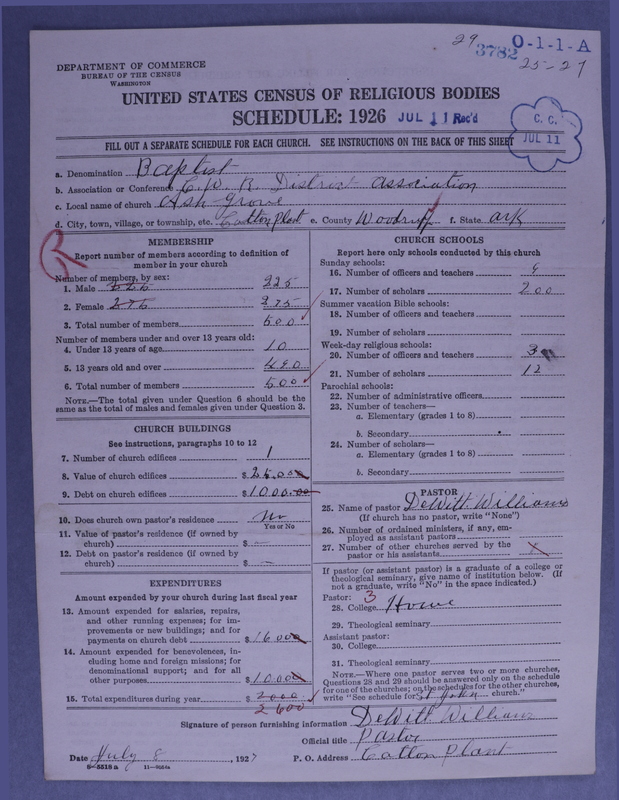 29 3782 O-1-1-A
25-27
DEPARTMENT OF COMMERCE
BUREAU OF THE CENSUS
WASHINGTON
UNITED STATES CENSUS OF RELIGIOUS BODIES
SCHEDULE: 1926 JUL 11 Rec'd
C. C.
JUL 11
FILL OUT A SEPARATE SCHEDULE FOR EACH CHURCH. SEE INSTRUCTIONS ON THE BACK OF THIS SHEET
a. Denomination Baptist
b. Association or Conference C.W. R. District association
c. Local name of church Ash Grove
d. City, town, village, or township, etc. Cotton Plant e. County Woodruff f. State ark
MEMBERSHIP
Report number of members according to definition of
member in your church
Number of members, by sex:
1. Male 225
2. Female 276 275
3. Total number of members 500
Number of members under and over 13 years old:
4. Under 13 years of age 10
5. 13 years old and over 490
6. Total number of members 500
NOTE.—The total given under Question 6 should be
same as the total of males and females given under Question 3.
CHURCH BUILDINGS
See instructions, paragraphs 10 to 12
7. Number of church edifices 1
8. Value of church edifices $25.000
9. Debt on church edifices $1000.00
10. Does church own pastor's residence No
Yes or No
11. Value of pastor's residence (if owned by
church) $ —
12. Debt on pastor's residence (if owned by
church) $ —
EXPENDITURES
Amount expended by your church during last fiscal year
13. Amount expended for salaries, repairs,
and other running expenses; for im-
provements or new buildings; and for
payments on church debt $1600
14. Amount expended for benevolences, in-
cluding home and foreign missions; for
denominational support; and for all
other purposes $1000
15. Total expenditures during year $2000
2600
CHURCH SCHOOLS
Report here only schools conducted by this church
Sunday schools:
16. Number of officers and teachers 9
17. Number of scholars 200
Summer vacation Bible schools:
18. Number of officers and teachers
19. Number of scholars
Week-day religious schools:
20. Number of officers and teachers 3
21. Number of scholars 12
Parochial schools:
22. Number of administrative officers
23. Number of teachers—
a. Elementary (grades 1 to 8)
b. Secondary
24. Number of scholars—
a. Elementary (grades 1 to 8)
b. Secondary
PASTOR
25. Name of pastor DeWitt. Williams
(If church has no pastor, write "None")
26. Number of ordained ministers, if any, em-
ployed as assistant pastors
27. Number of other churches served by the
pastor or his assistants X
If pastor (or assistant pastor) is a graduate of a college or
theological seminary, give name of institution below. (If
not a graduate, write "No" in the space indicated.)
Pastor: 3
28. College Howe
29. Theological seminary
Assistant pastor:
30. College
31. Theological seminary
NOTE.—Where one pastor serves two or more churches,
Questions 28 and 29 should be answered only on the schedule
for one of the churches; on the schedules for the other churches,
write "See schedule for St John church."
Signature of person furnishing information DeWitt. Williams
Official title Pastor
Date July 8, 1927 P. O. Address Cotton Plant
8-5518a 11-9024a